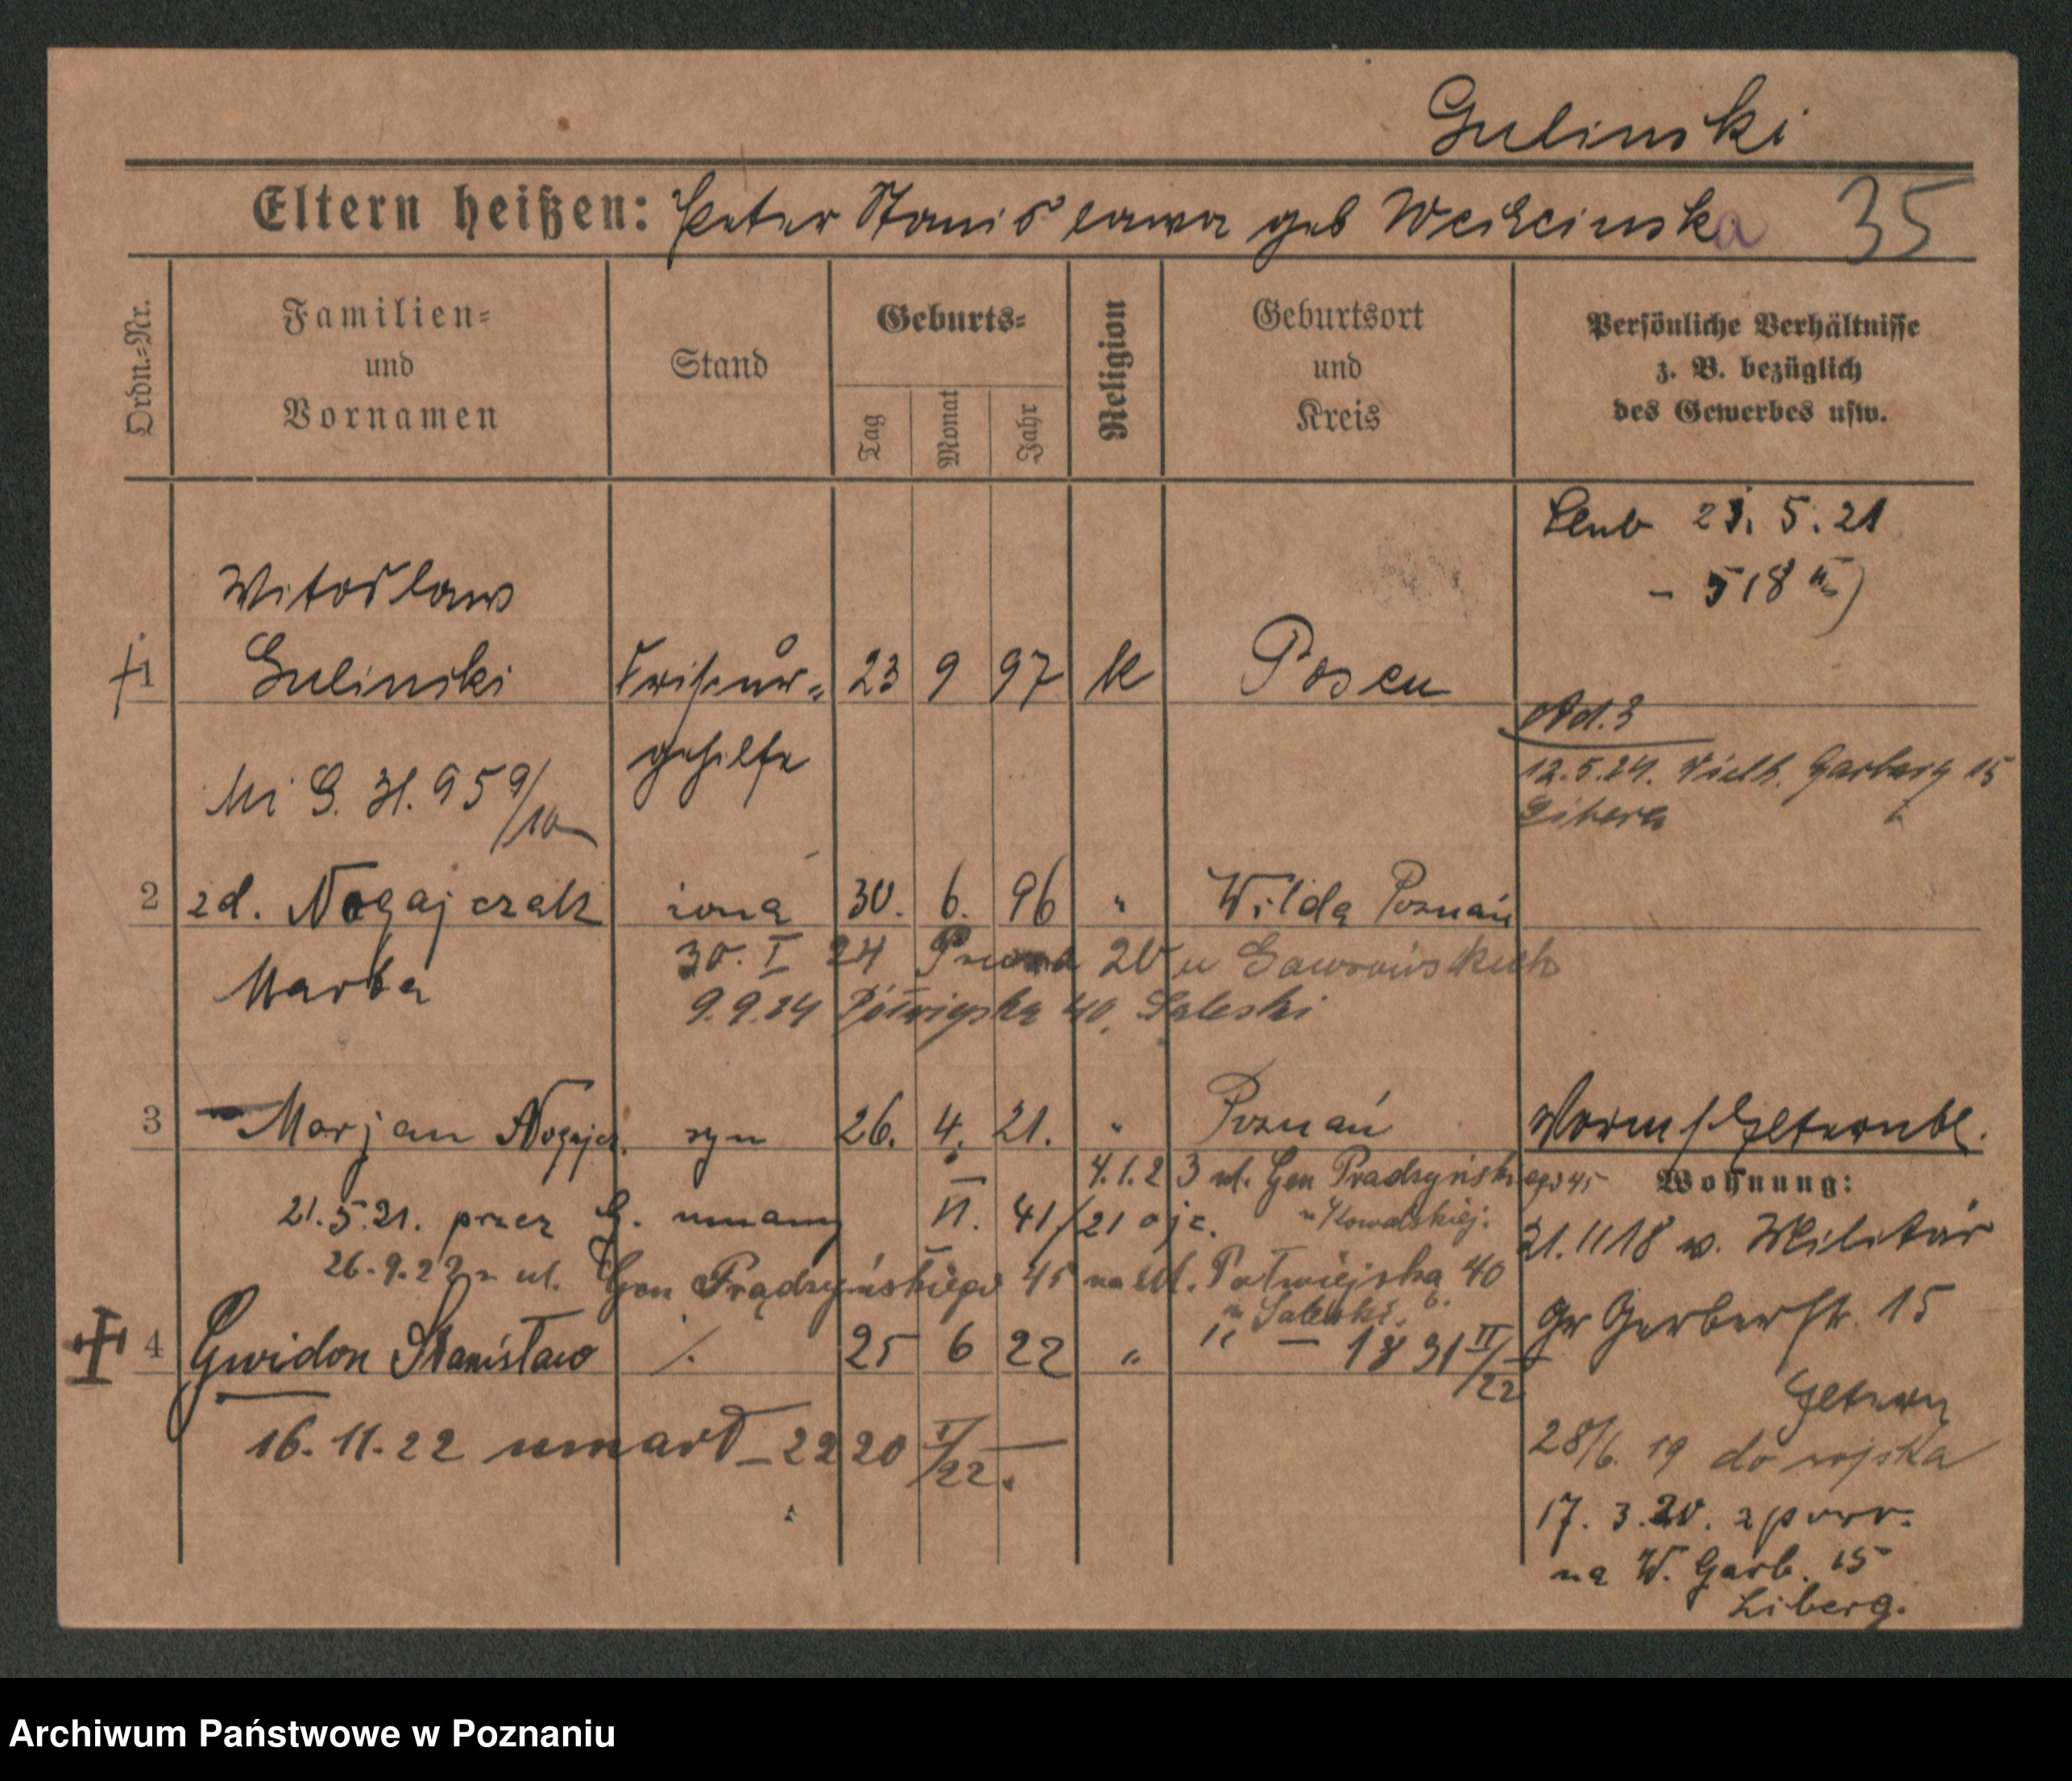 Gulinski
Eltern heißen: Peter Stanislawa geb Weiżcinska 35
Ordn.-Nr.
Familien- und Vornamen
Stand
Geburts-
Tag Monat Jahr
Religion
Geburtsort und Kreis
Persönliche Verhältnisse z. B. bezüglich des Gewerbes usw.
21. 5. 21
- 518
Witoslaw
1 Gulinski Friseur- 23 9 97 k Posen
gehilfe
Od. 3
12.5.24. Garbary 15
2 zd. Nogajczak żona 30. 6. 96 " Wilda Poznań
Marta
30. I 24 20 u
9.9.24 Półwiejska 40, Saleski
3 Marjan Nogajcz. syn 26. 4. 21. " Poznań
4.1.23 ul. Gen Pradzyńskiego 45
"Kowalskiej.
21.5.21. przez G. uznany VI. 41/21 ojc.
26.9.22 z ul. Gen Prądzyńskiego 45 na ul. Połwiejską 40
" Saleski.
4 Gwidon Stanisław /. 25 6 22 " " - 1831 II/22
16.11.22 umarł - 2220 II/22.
Vorm s/Elternbl.
Wohnung:
21.1118 v. Militär
Gr Gerberstr. 15
Eltern
28/6. 19 do wojska
17. 3. 20. z powr.
na W. Garb. 15
Liberg.
Archiwum Państwowe w Poznaniu